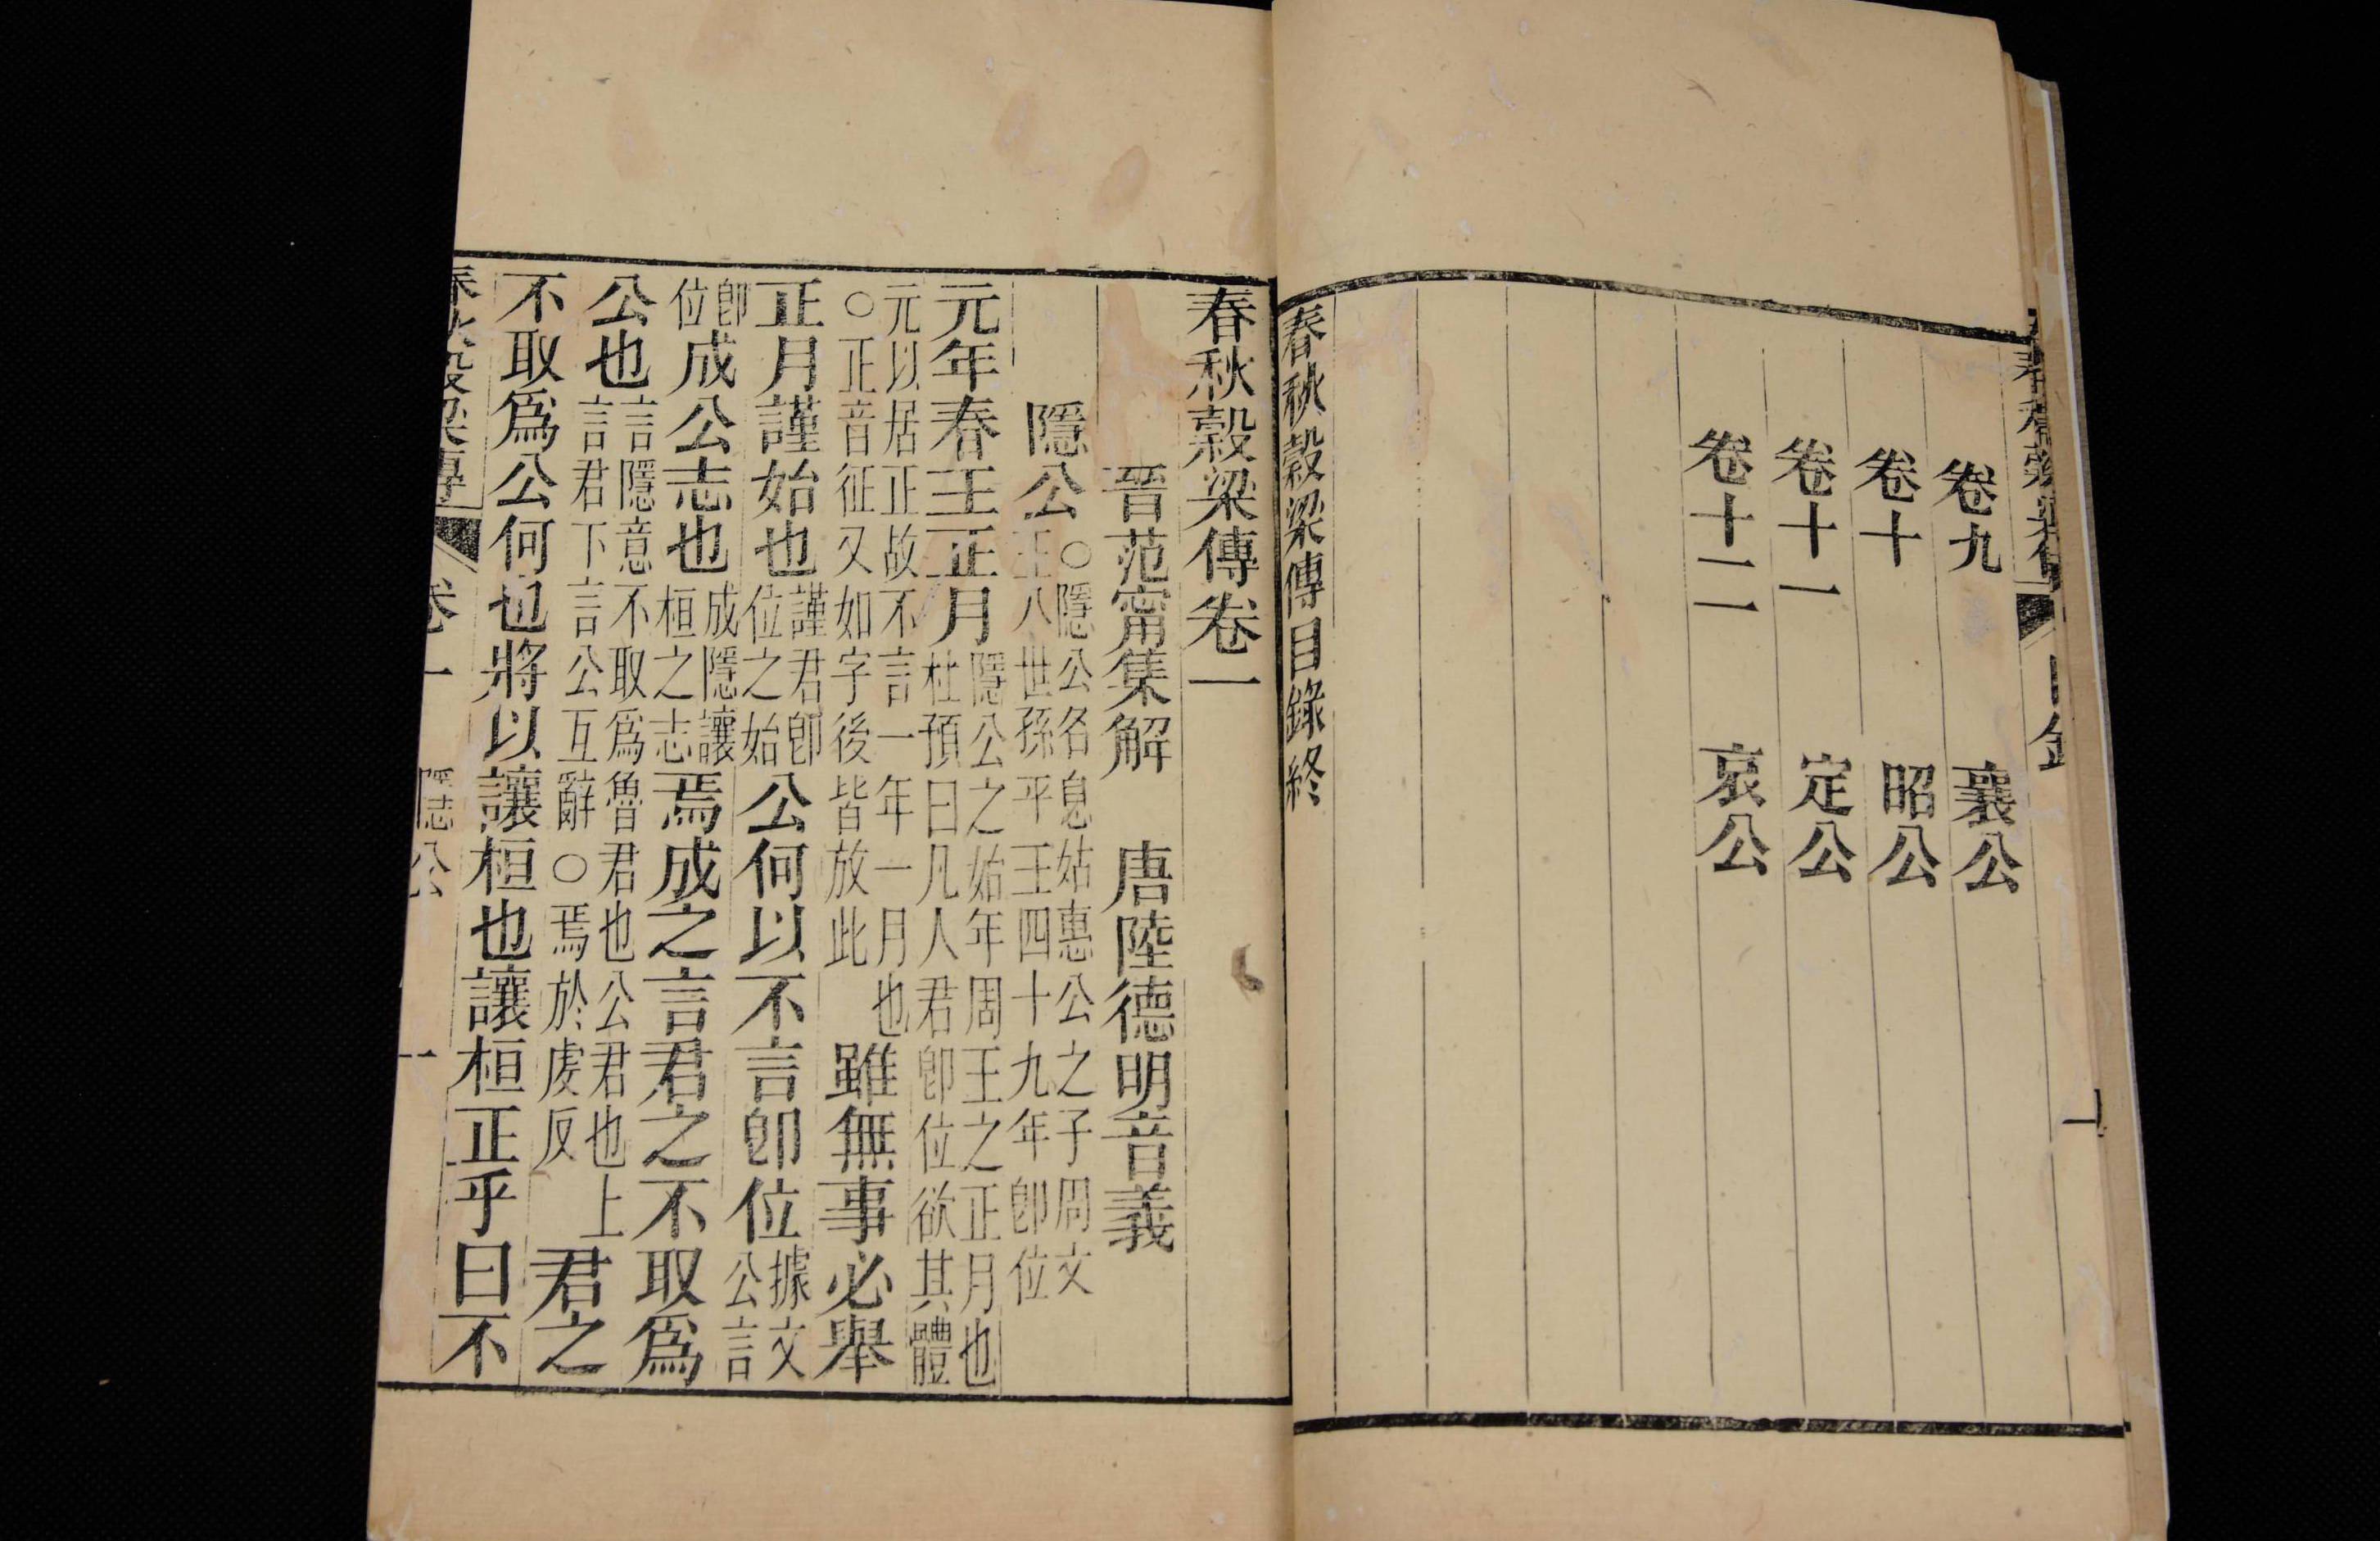 卷九 襄公
卷十 昭公
卷十一 定公
卷十二 哀公
春秋穀梁傳目錄終
春秋穀梁傳卷一
晉范甯集解 唐陸德明音義
隱公
○隱公名息姑惠公之子周文
王八世孫平王四十九年卽位
元年春王正月
隱公之始年周王之正月也
杜預曰凡人君卽位欲其體
元以居正故不言一年一月也
○正音征又如字後皆放此
雖無事必舉
正月謹始也
謹君卽
位之始
公何以不言卽位
據文
公言
卽
位
成公志也
成隱讓
桓之志
焉成之言君之不取爲
公也
言隱意不取爲魯君也公君也上
言君下言公互辭○焉於虔反
君之
不取爲公何也將以讓桓也讓桓正乎曰不
春秋穀梁傳 卷一 隱公 一